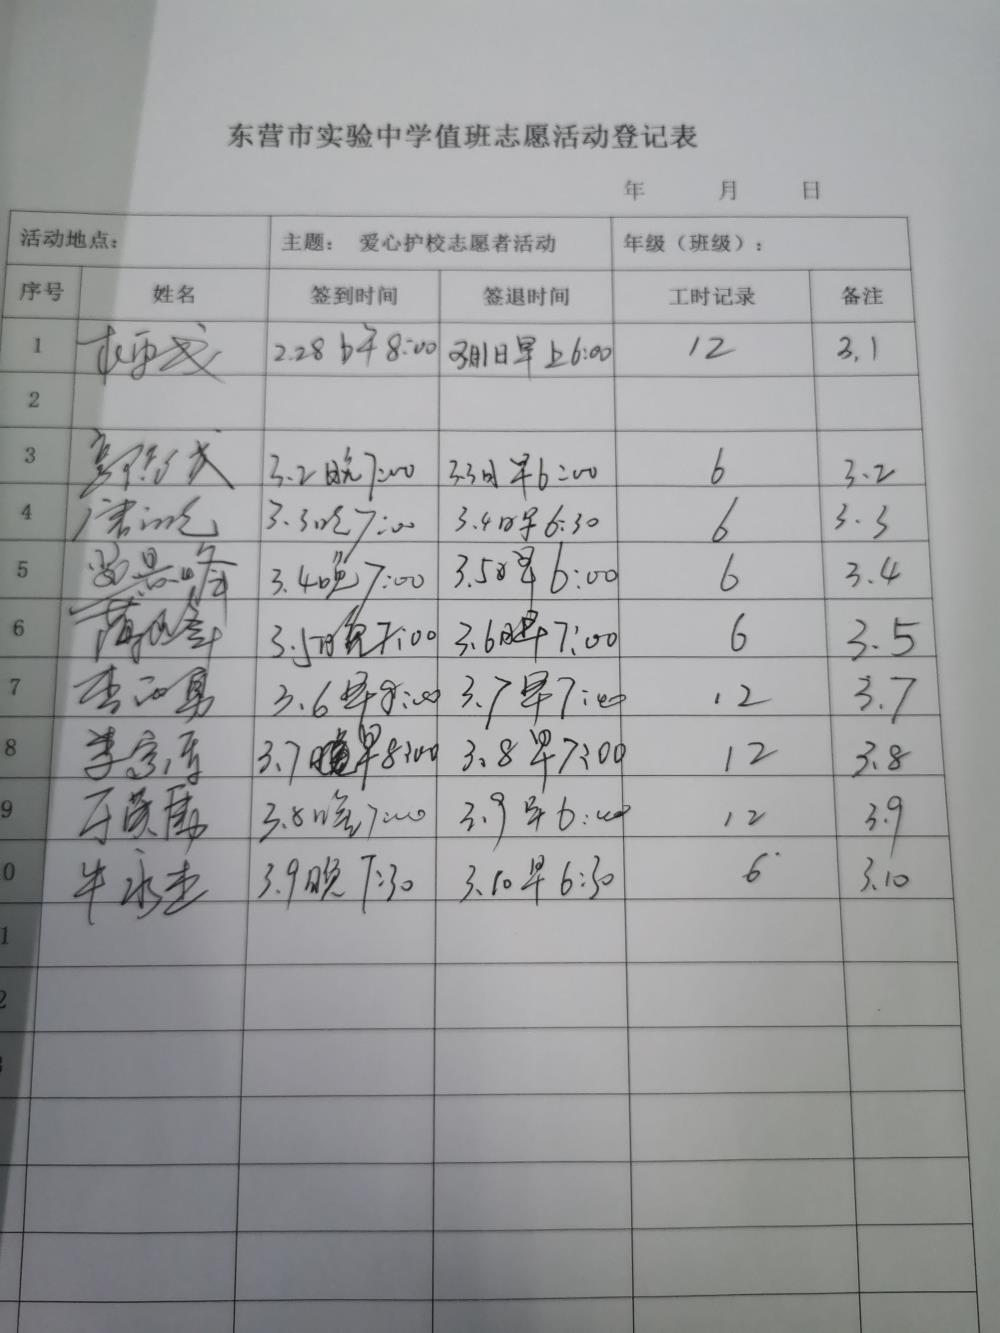 东营市实验中学值班志愿活动登记表
年 月 日
活动地点： 主题： 爱心护校志愿者活动 年级（班级）：
序号 姓名 签到时间 签退时间 工时记录 备注
1 2.28 8:00 3月1日早上6:00 12 3.1
2
3 3.2日晚7:00 3.3日早6:00 6 3.2
4 3.3晚7:00 3.4日早6:30 6 3.3
5 3.4晚7:00 3.5日早6:00 6 3.4
6 3.5日晚7:00 3.6日早7:00 6 3.5
7 3.6早8:00 3.7早7:00 12 3.7
8 3.7早8:00 3.8早7:00 12 3.8
9 3.8晚7:00 3.9早6:00 12 3.9
0 牛永杰 3.9日晚7:30 3.10早6:30 6 3.10
1
2
3